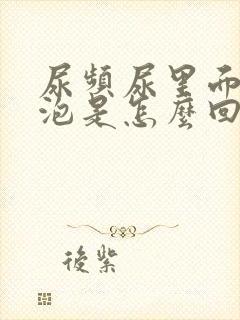 尿頻尿里而
泡是怎麼回
後紫